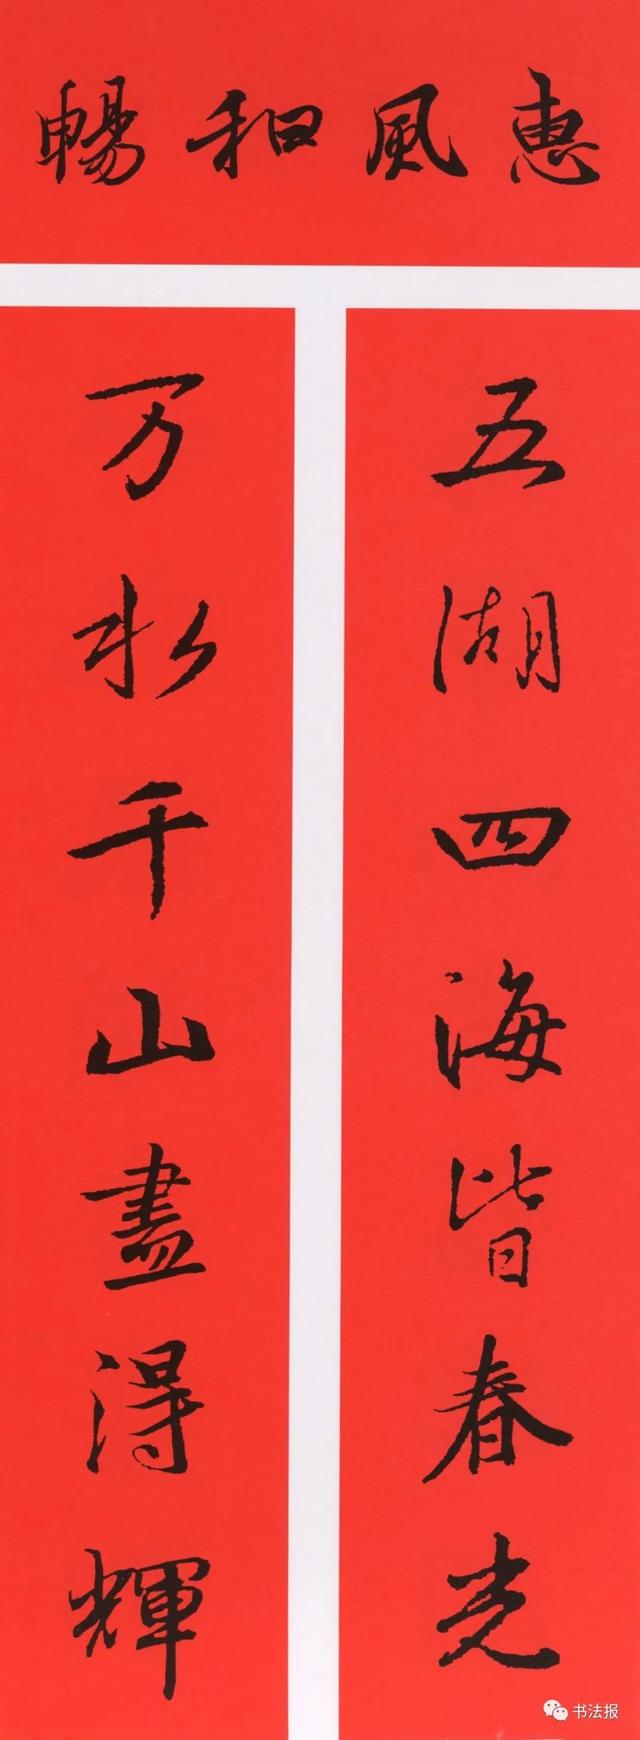 惠風和暢
五湖四海皆春光
万水千山盡得輝
书法报